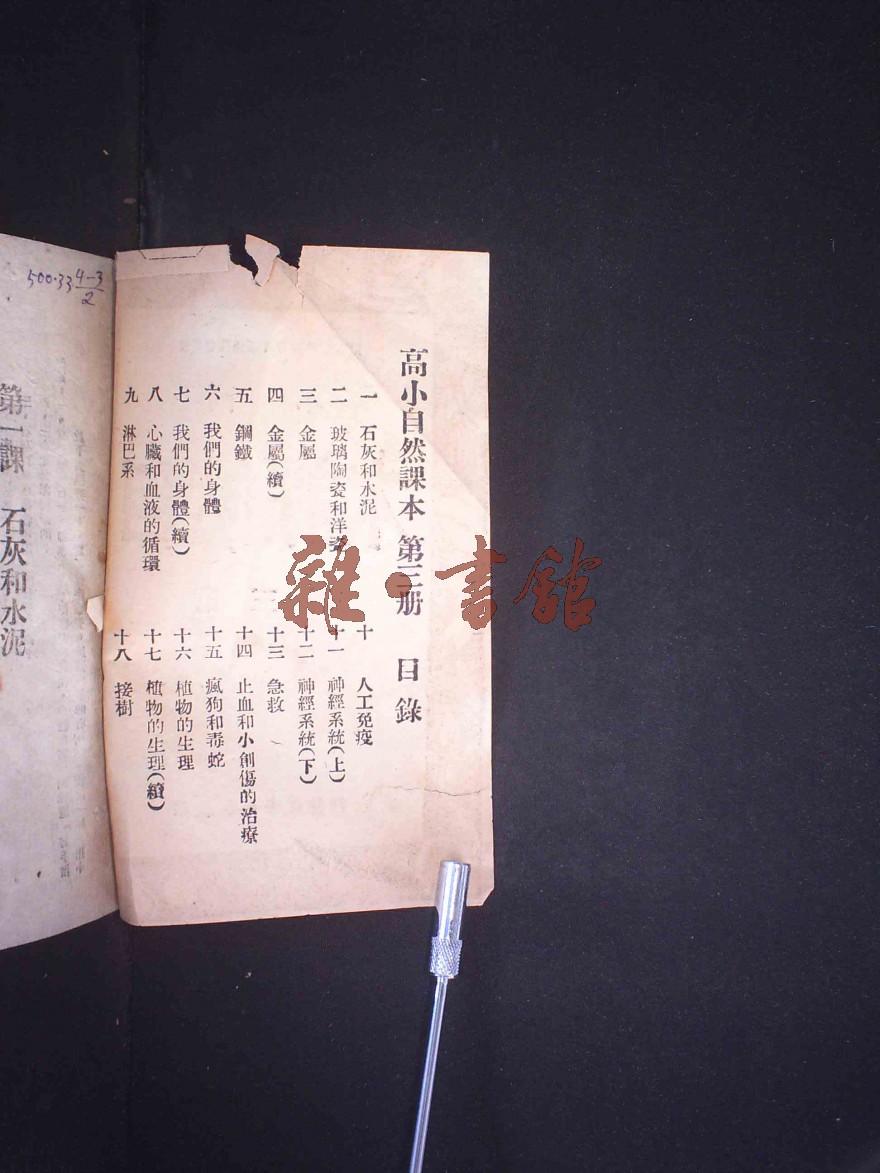 高小自然課本 第三册 目錄
一 石灰和水泥
二 玻璃陶瓷和洋瓷
三 金屬
四 金屬(續)
五 鋼鐵
六 我們的身體
七 我們的身體(續)
八 心臟和血液的循環
九 淋巴系
十 人工免疫
十一 神經系統(上)
十二 神經系統(下)
十三 急救
十四 止血和小創傷的治療
十五 瘋狗和毒蛇
十六 植物的生理
十七 植物的生理(續)
十八 接樹
500·33 4-3
2
第一課 石灰和水泥
雜·書館